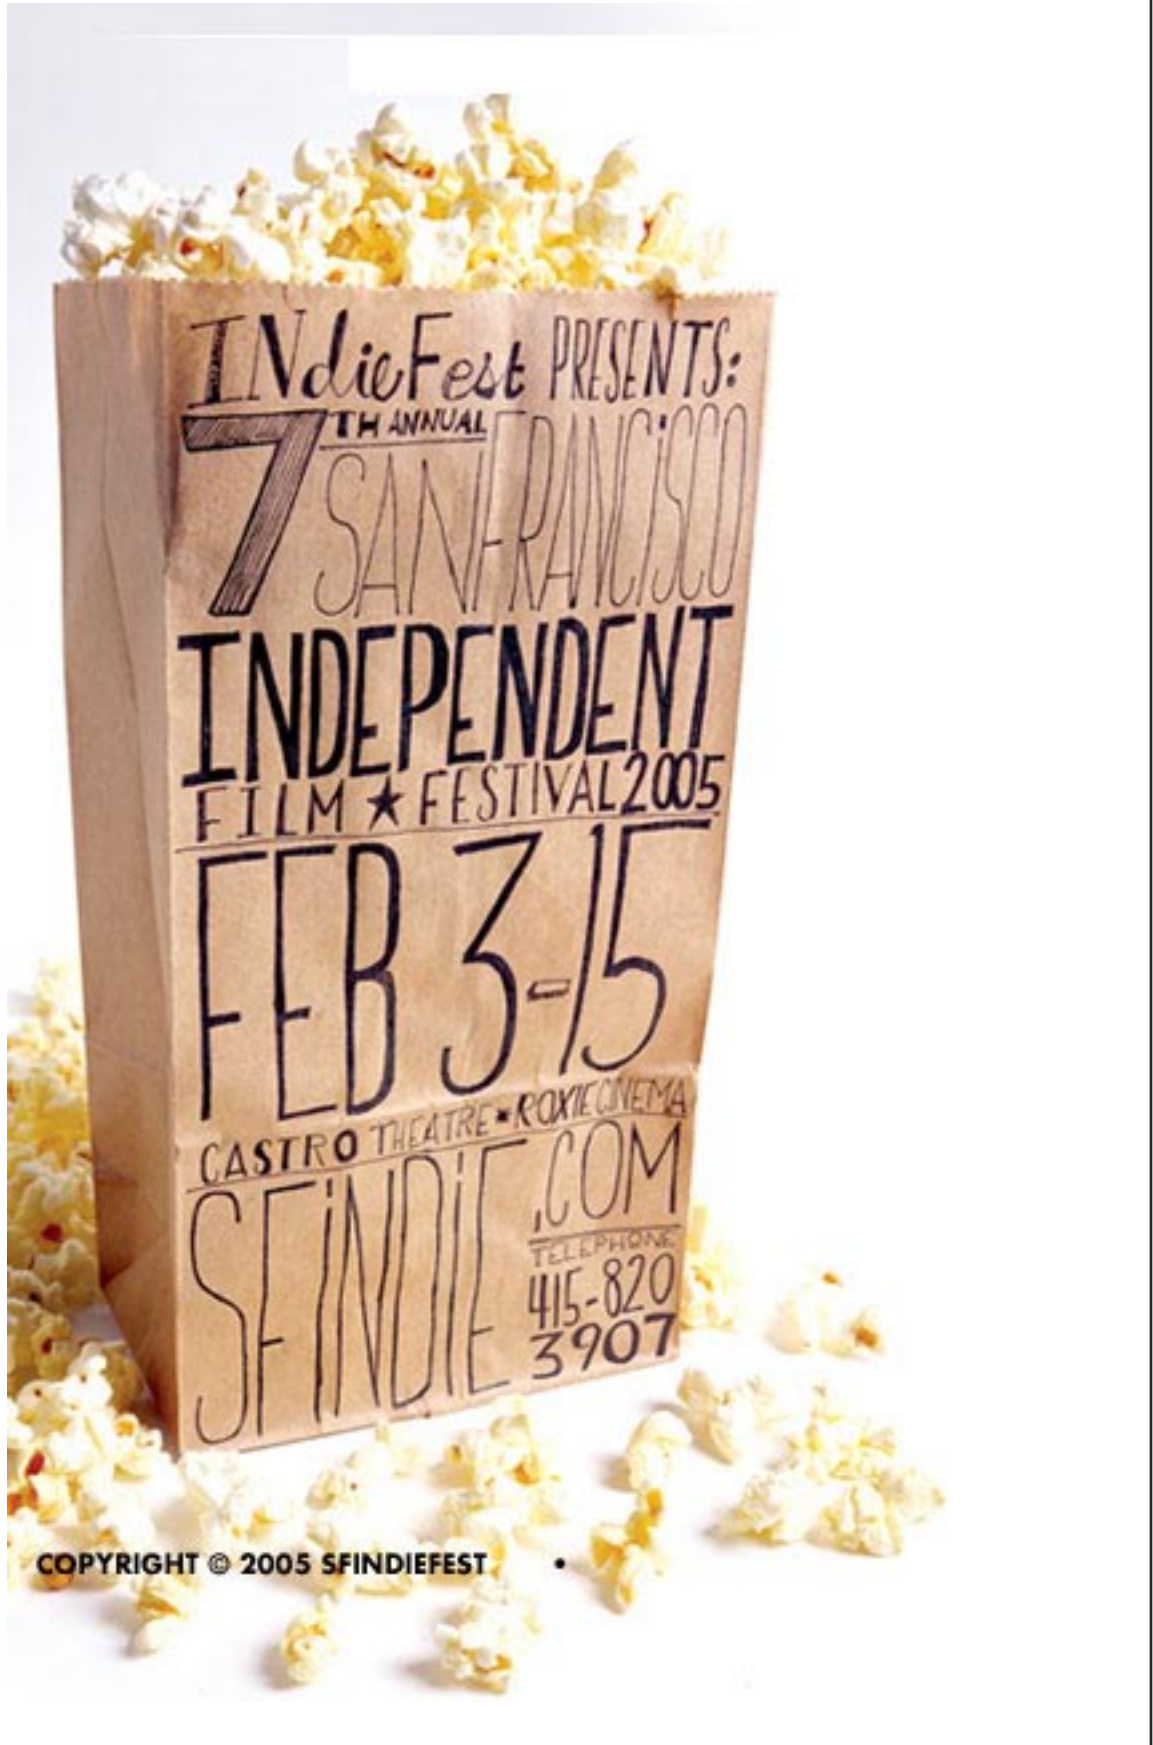 INdieFest PRESENTS:
7TH ANNUAL
SAN FRANCISCO
INDEPENDENT
FILM ★ FESTIVAL 2005
FEB 3-15
CASTRO THEATRE ★ ROXIE CINEMA
SFiNDiE.COM
TELEPHONE
415-820
3907
COPYRIGHT © 2005 SFINDIEFEST •